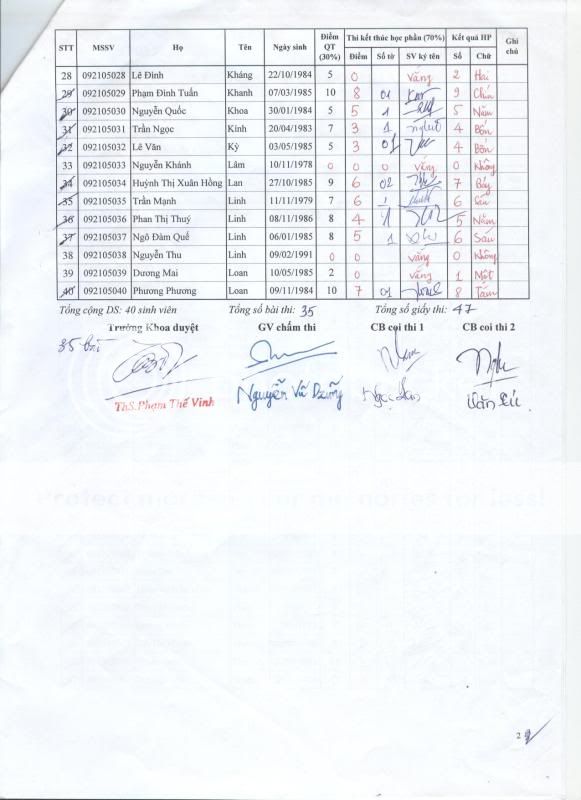 STT MSSV Họ Tên Ngày sinh Điểm QT (30%) Thi kết thúc học phần (70%) Kết quả HP Ghi chú
Điểm Số tờ SV ký tên Số Chữ
28 092105028 Lê Đình Kháng 22/10/1984 5 0 vắng 2 Hai
29 092105029 Phạm Đình Tuấn Khanh 07/03/1985 10 8 01 9 Chín
30 092105030 Nguyễn Quốc Khoa 30/01/1984 5 5 1 5 Năm
31 092105031 Trần Ngọc Kính 20/04/1983 7 3 1 4 Bốn
32 092105032 Lê Văn Kỳ 03/05/1985 5 3 01 4 Bốn
33 092105033 Nguyễn Khánh Lâm 10/11/1978 0 0 0 vắng 0 Không
34 092105034 Huỳnh Thị Xuân Hồng Lan 27/10/1985 9 6 02 7 Bảy
35 092105035 Trần Mạnh Linh 11/11/1979 7 6 1 6 Sáu
36 092105036 Phan Thị Thuý Linh 08/11/1986 8 4 1 5 Năm
37 092105037 Ngô Đàm Quế Linh 06/01/1985 8 5 1 6 Sáu
38 092105038 Nguyễn Thu Linh 09/02/1991 0 0 vắng 0 Không
39 092105039 Dương Mai Loan 10/05/1985 2 0 vắng 1 Một
40 092105040 Phương Phương Loan 09/11/1984 10 7 01 8 Tám
Tổng cộng DS: 40 sinh viên Tổng số bài thi: 35 Tổng số giấy thi: 47
Trưởng Khoa duyệt GV chấm thi CB coi thi 1 CB coi thi 2
35 bài
ThS.Phạm Thế Vinh Nguyễn Vũ Dzũng
2